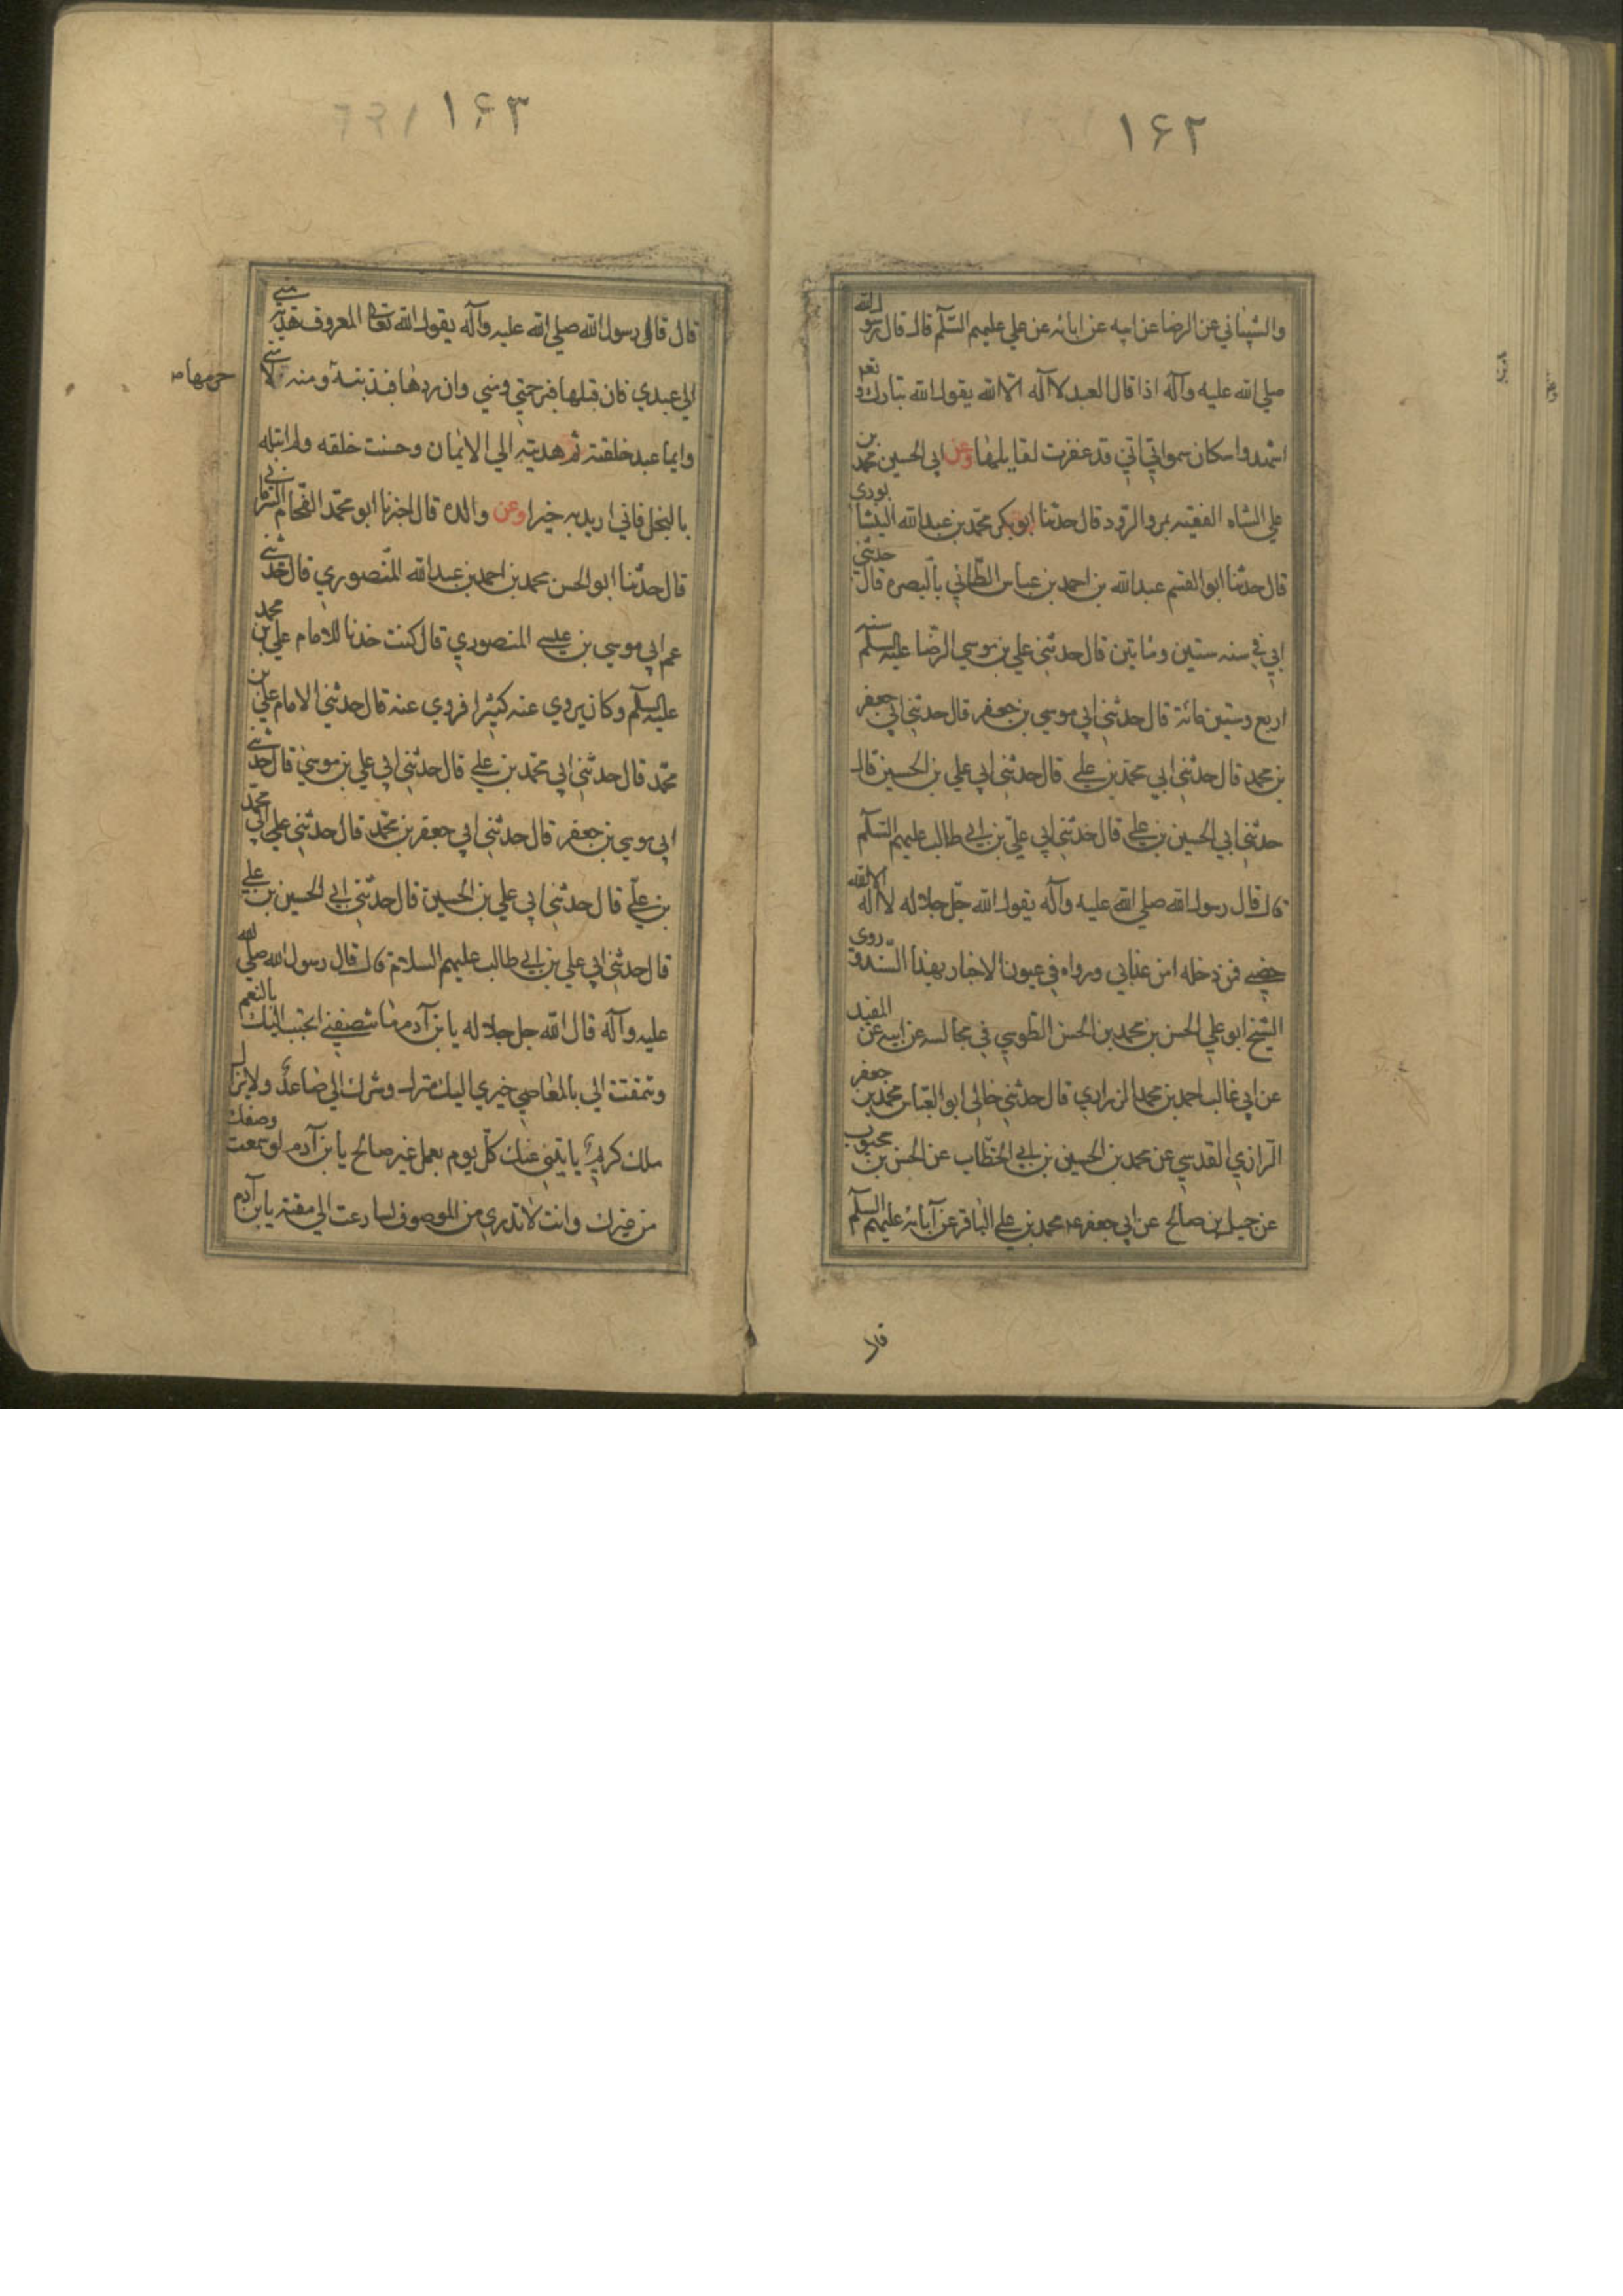 ۱۶۲
والشيباني عن الرضا عن ابيه عن ابائه عن علي عليهم السّلم قال قال رسول الله
صلي الله عليه وآله اذا قال العبد لا اله الّا الله يقول الله تبارك و تعم
اشهدوا سكان سمواتي اني قد غفرت لقايلها وعن ابي الحسين محمّد بن
علي الشاه الفقيه بمرو الرّود قال حدثنا ابو بكر محمّد بن عبد الله النيشا بوري
قال حدثنا ابو القسم عبد الله بن احمد بن عباس الطّائي بالبصره قال حدثني
ابي في سنه ستين ومأتين قال حدثني علي بن موسي الرّضا عليه السّلم سنه
اربع وستين مائة قال حدثني ابي موسي بن جعفر قال حدثني ابي جعفر
بن محمد قال حدثني ابي محمّد بن علي قال حدثني ابي علي بن الحسين قال
حدثني ابي الحسين بن علي قال حدثني ابي عليّ بن ابي طالب عليهم السّلم
قال قال رسول الله صلي الله عليه وآله يقول الله جلّ جلاله لا اله الا الله
حصني فمن دخله امن عذابي ورواه في عيون الاخبار بهذا السّند و روى
الشيخ ابو علي الحسن بن محمد بن الحسن الطّوسي في مجالسه عن ابيه عن المفيد
عن ابي غالب احمد بن محمد الزراري قال حدثني خالي ابو العبّاس محمّد بن جعفر
الرّازي القدسي عن محمد بن الحسين بن ابي الخطّاب عن الحسن بن محبوب
عن جميل بن صالح عن ابي جعفر محمد بن علي الباقر عن آبائه عليهم السّلم
قال
۱۶۳
قال قال لي رسول الله صلي الله عليه وآله يقول الله تعالى المعروف هدية مني
الي عبدي فان قبلها فبرحمتي ومني وان ردها فبذنبه ومنه لا مني
حرمها ص
وايما عبد خلقته ثم هديته الي الايمان وحسنت خلقه ولم ابتله
بالبخل فاني اريد به خيرا وعن والده قال اخبرنا ابو محمّد الفحّام
قال حدّثنا ابو الحسن محمد بن احمد بن عبد الله المنصوري قال حدثني
عم ابي موسي بن عيسي المنصوري قال كنت خدنا للامام علي بن محمد
عليه السّلم وكان يروي عنه كثيرا فروي عنه قال حدثني الامام علي بن
محمّد قال حدثني ابي محمّد بن علي قال حدثني ابي علي بن موسي قال حدثني
ابي موسي بن جعفر قال حدثني ابي جعفر بن محمّد قال حدثني علي ابي محمّد
بن علّي قال حدثني ابي علي بن الحسين قال حدثني ابي الحسين بن علي
قال حدثني ابي علي بن ابي طالب عليهم السلام قال قال رسول الله صلي الله
عليه وآله قال الله جل جلاله يا بن آدم ما تنصفني اتحبب اليك بالنعم
وتتمقت الي بالمعاصي خيري اليك منزل وشرك الي صاعد ولا يزال
ملك كريم يأتيني عنك كلّ يوم بعمل غير صالح يا بن آدم لو سمعت وصفك
من غيرك وانت لا تدري من الموصوف لسارعت الي مقته يا بن آدم